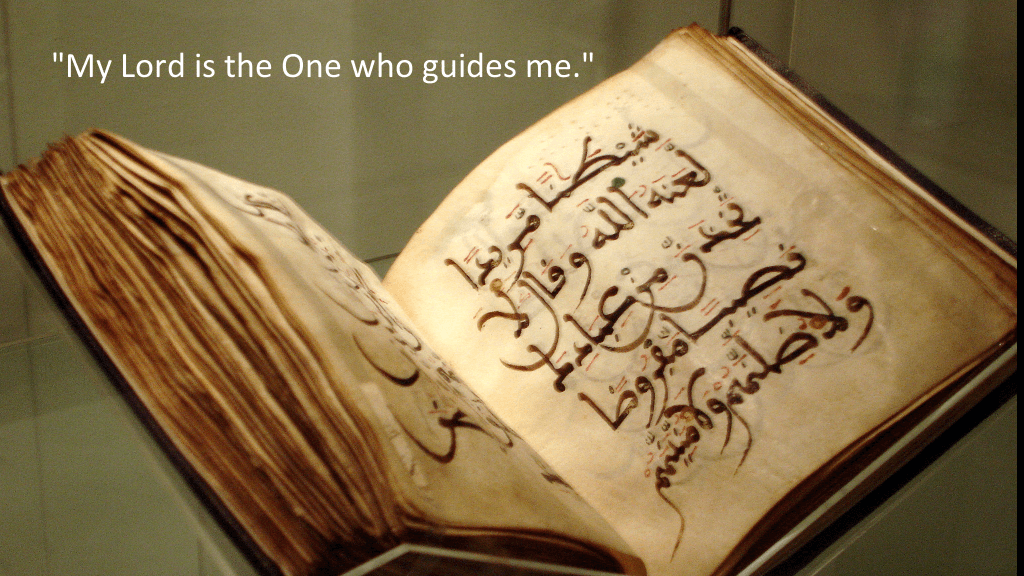 "My Lord is the One who guides me."
شيطنا مريدا
لعنه الله وقال لا
تخذن من عبادك
نصيبا مفروضا
ولاضلنهم ولامنينهم